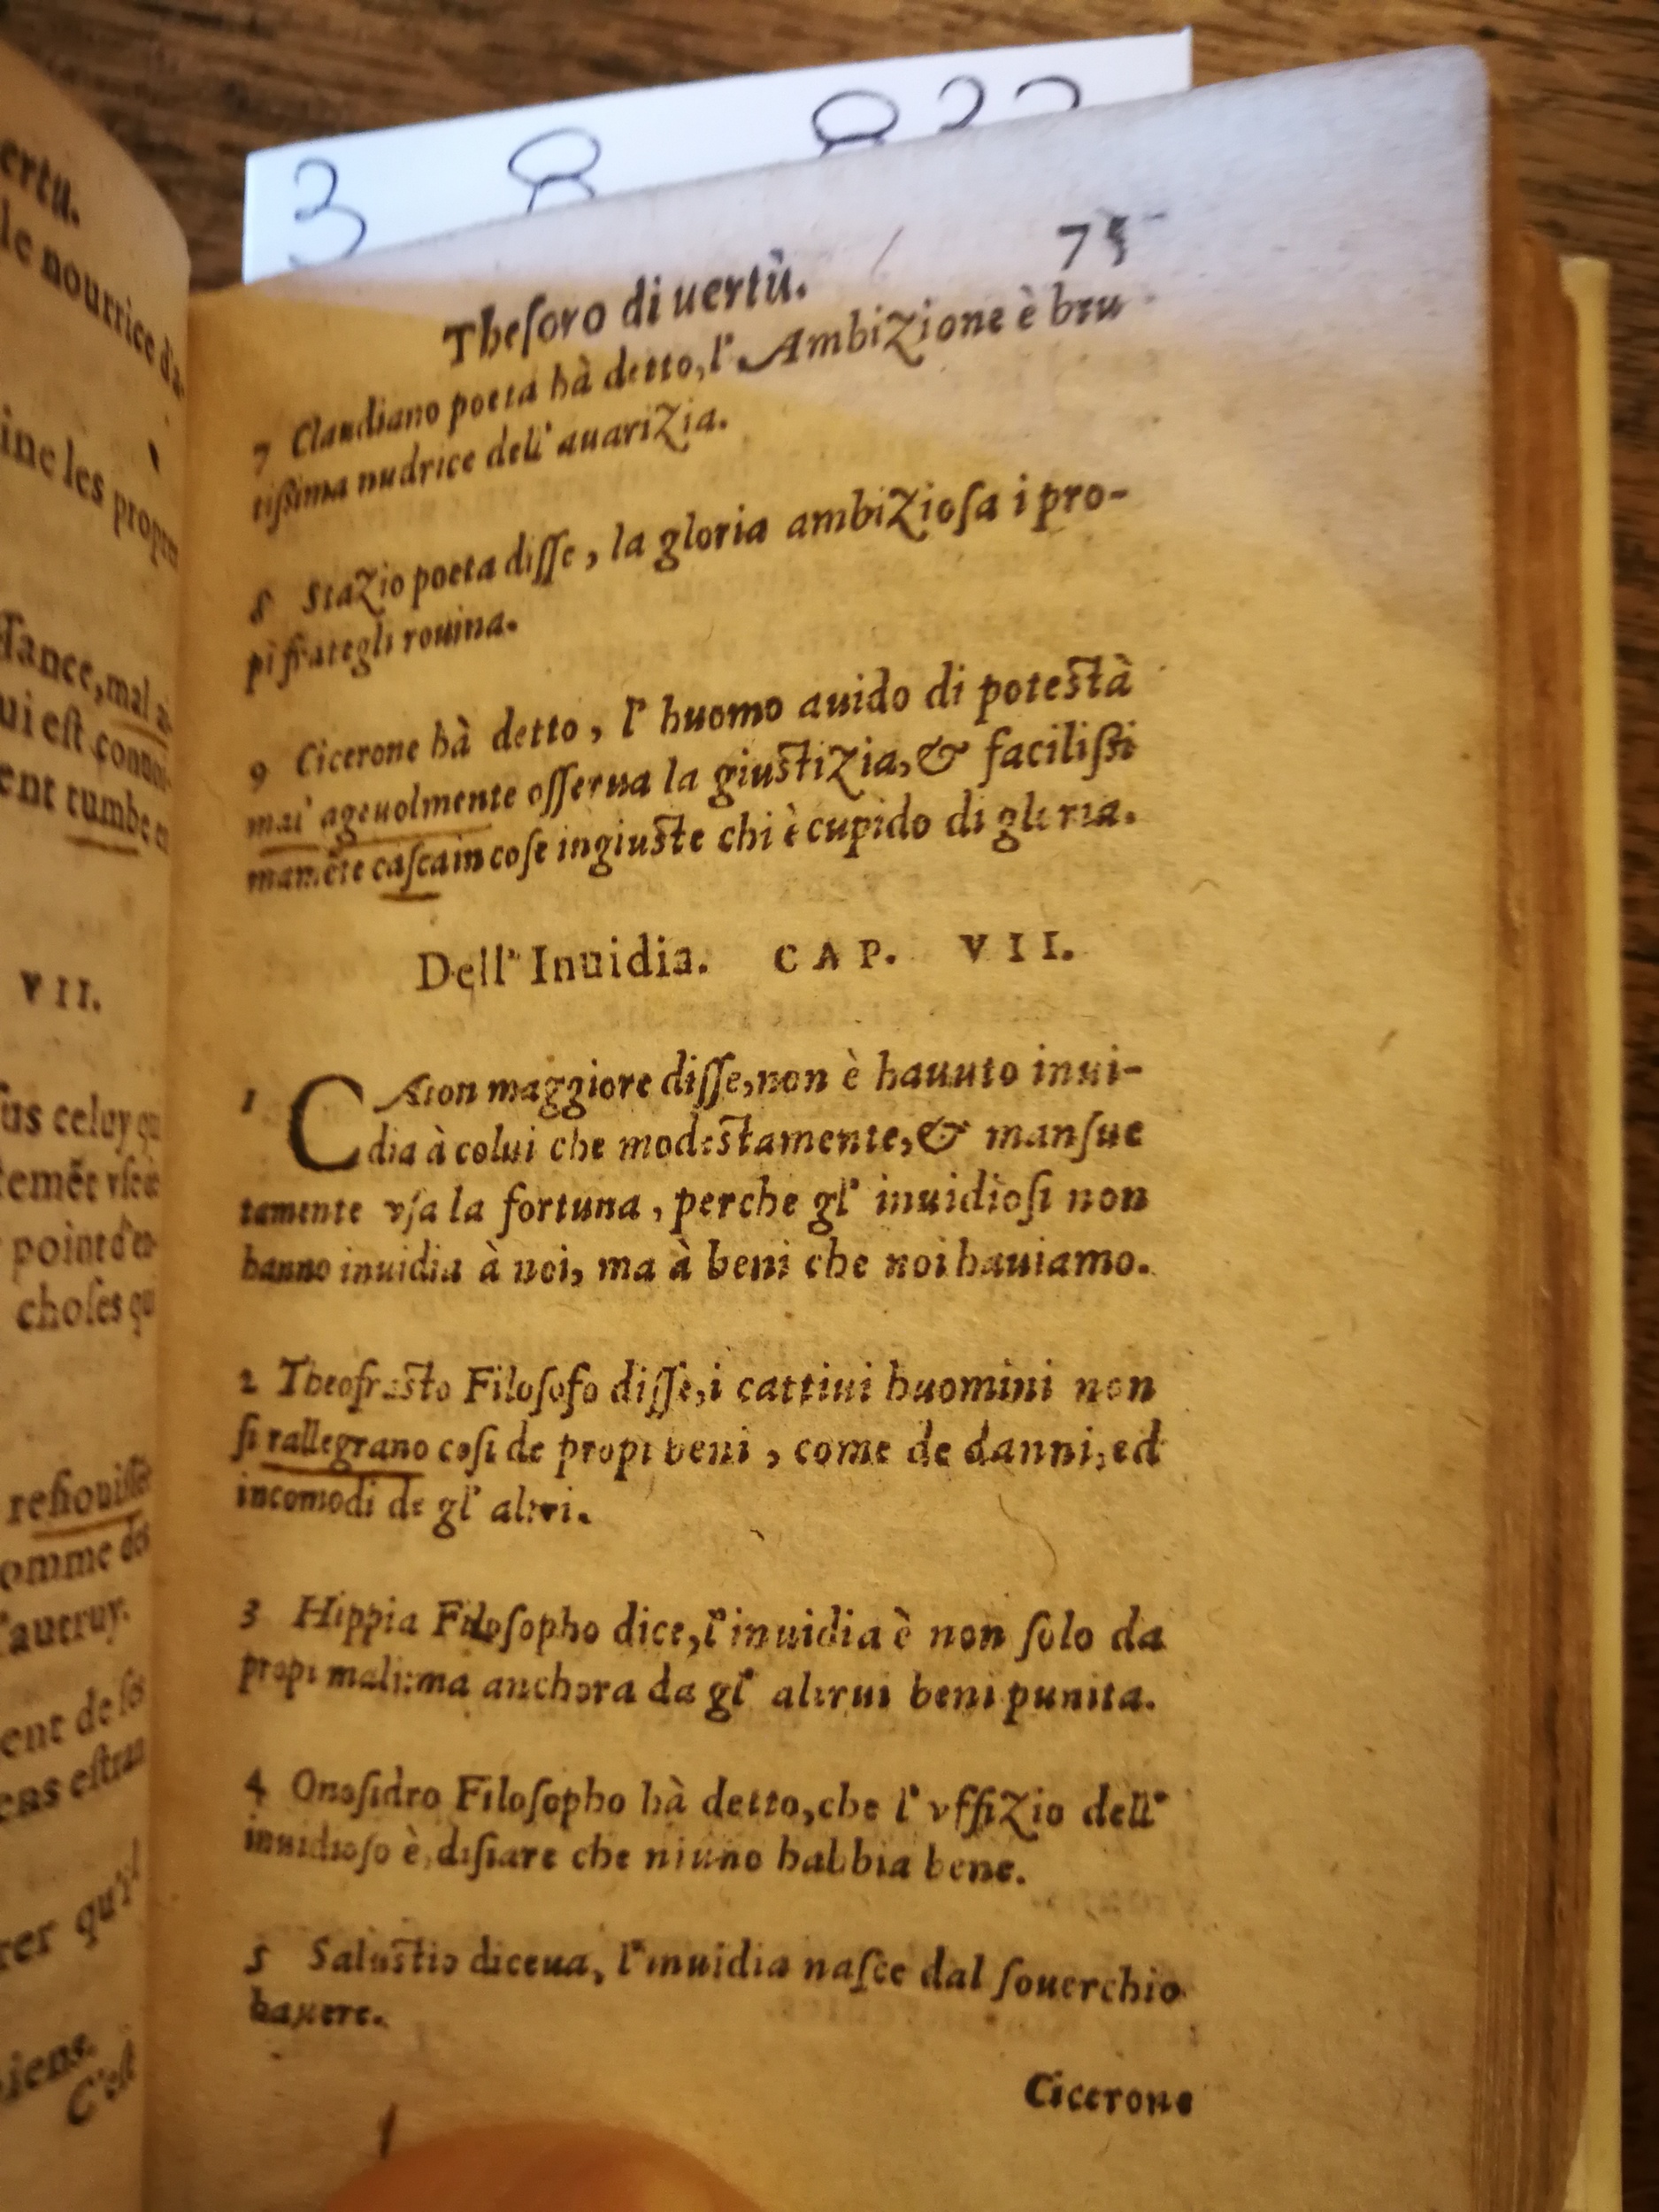 ertu.
le nourrice d'a-
ine les propres
sance, mal ai-
ui est conuoi-
ent tumbe en
VII.
sus celuy qui
temẽt vse de
point d'en-
choses qui
resiouissẽt
omme des
l'autruy.
ent de ses
cas estran
rer qu'il
iens.
C'est
3 8 8 2 2
Thesoro di uertù. 75
7 Claudiano poeta hà detto, l' Ambizione è bru
tissima nudrice dell' auarizia.
8 Stazio poeta disse, la gloria ambiziosa i pro-
pi frategli rouina.
9 Cicerone hà detto, l' huomo auido di potestà
mai' ageuolmente osserua la giustizia, & facilissi
mamẽte casca in cose ingiuste chi è cupido di gloria.
Dell' Inuidia. CAP. VII.
1 CAton maggiore disse, non è hauuto inui-
dia à colui che modestamente, & mansue
tamente vsa la fortuna, perche gl' inuidiosi non
hanno inuidia à noi, ma à beni che noi hauiamo.
2 Theofrasto Filosofo disse, i cattiui huomini non
si rallegrano cosi de propi beni, come de danni, ed
incomodi de gl' altri.
3 Hippia Filosopho dice, l' inuidia è non solo da
propi mali: ma anchora da gl' altrui beni punita.
4 Onosidro Filosopho hà detto, che l' vffizio dell'
inuidioso è, disiare che niuno habbia bene.
5 Salustio diceua, l' inuidia nasce dal souerchio
hauere.
Cicerone